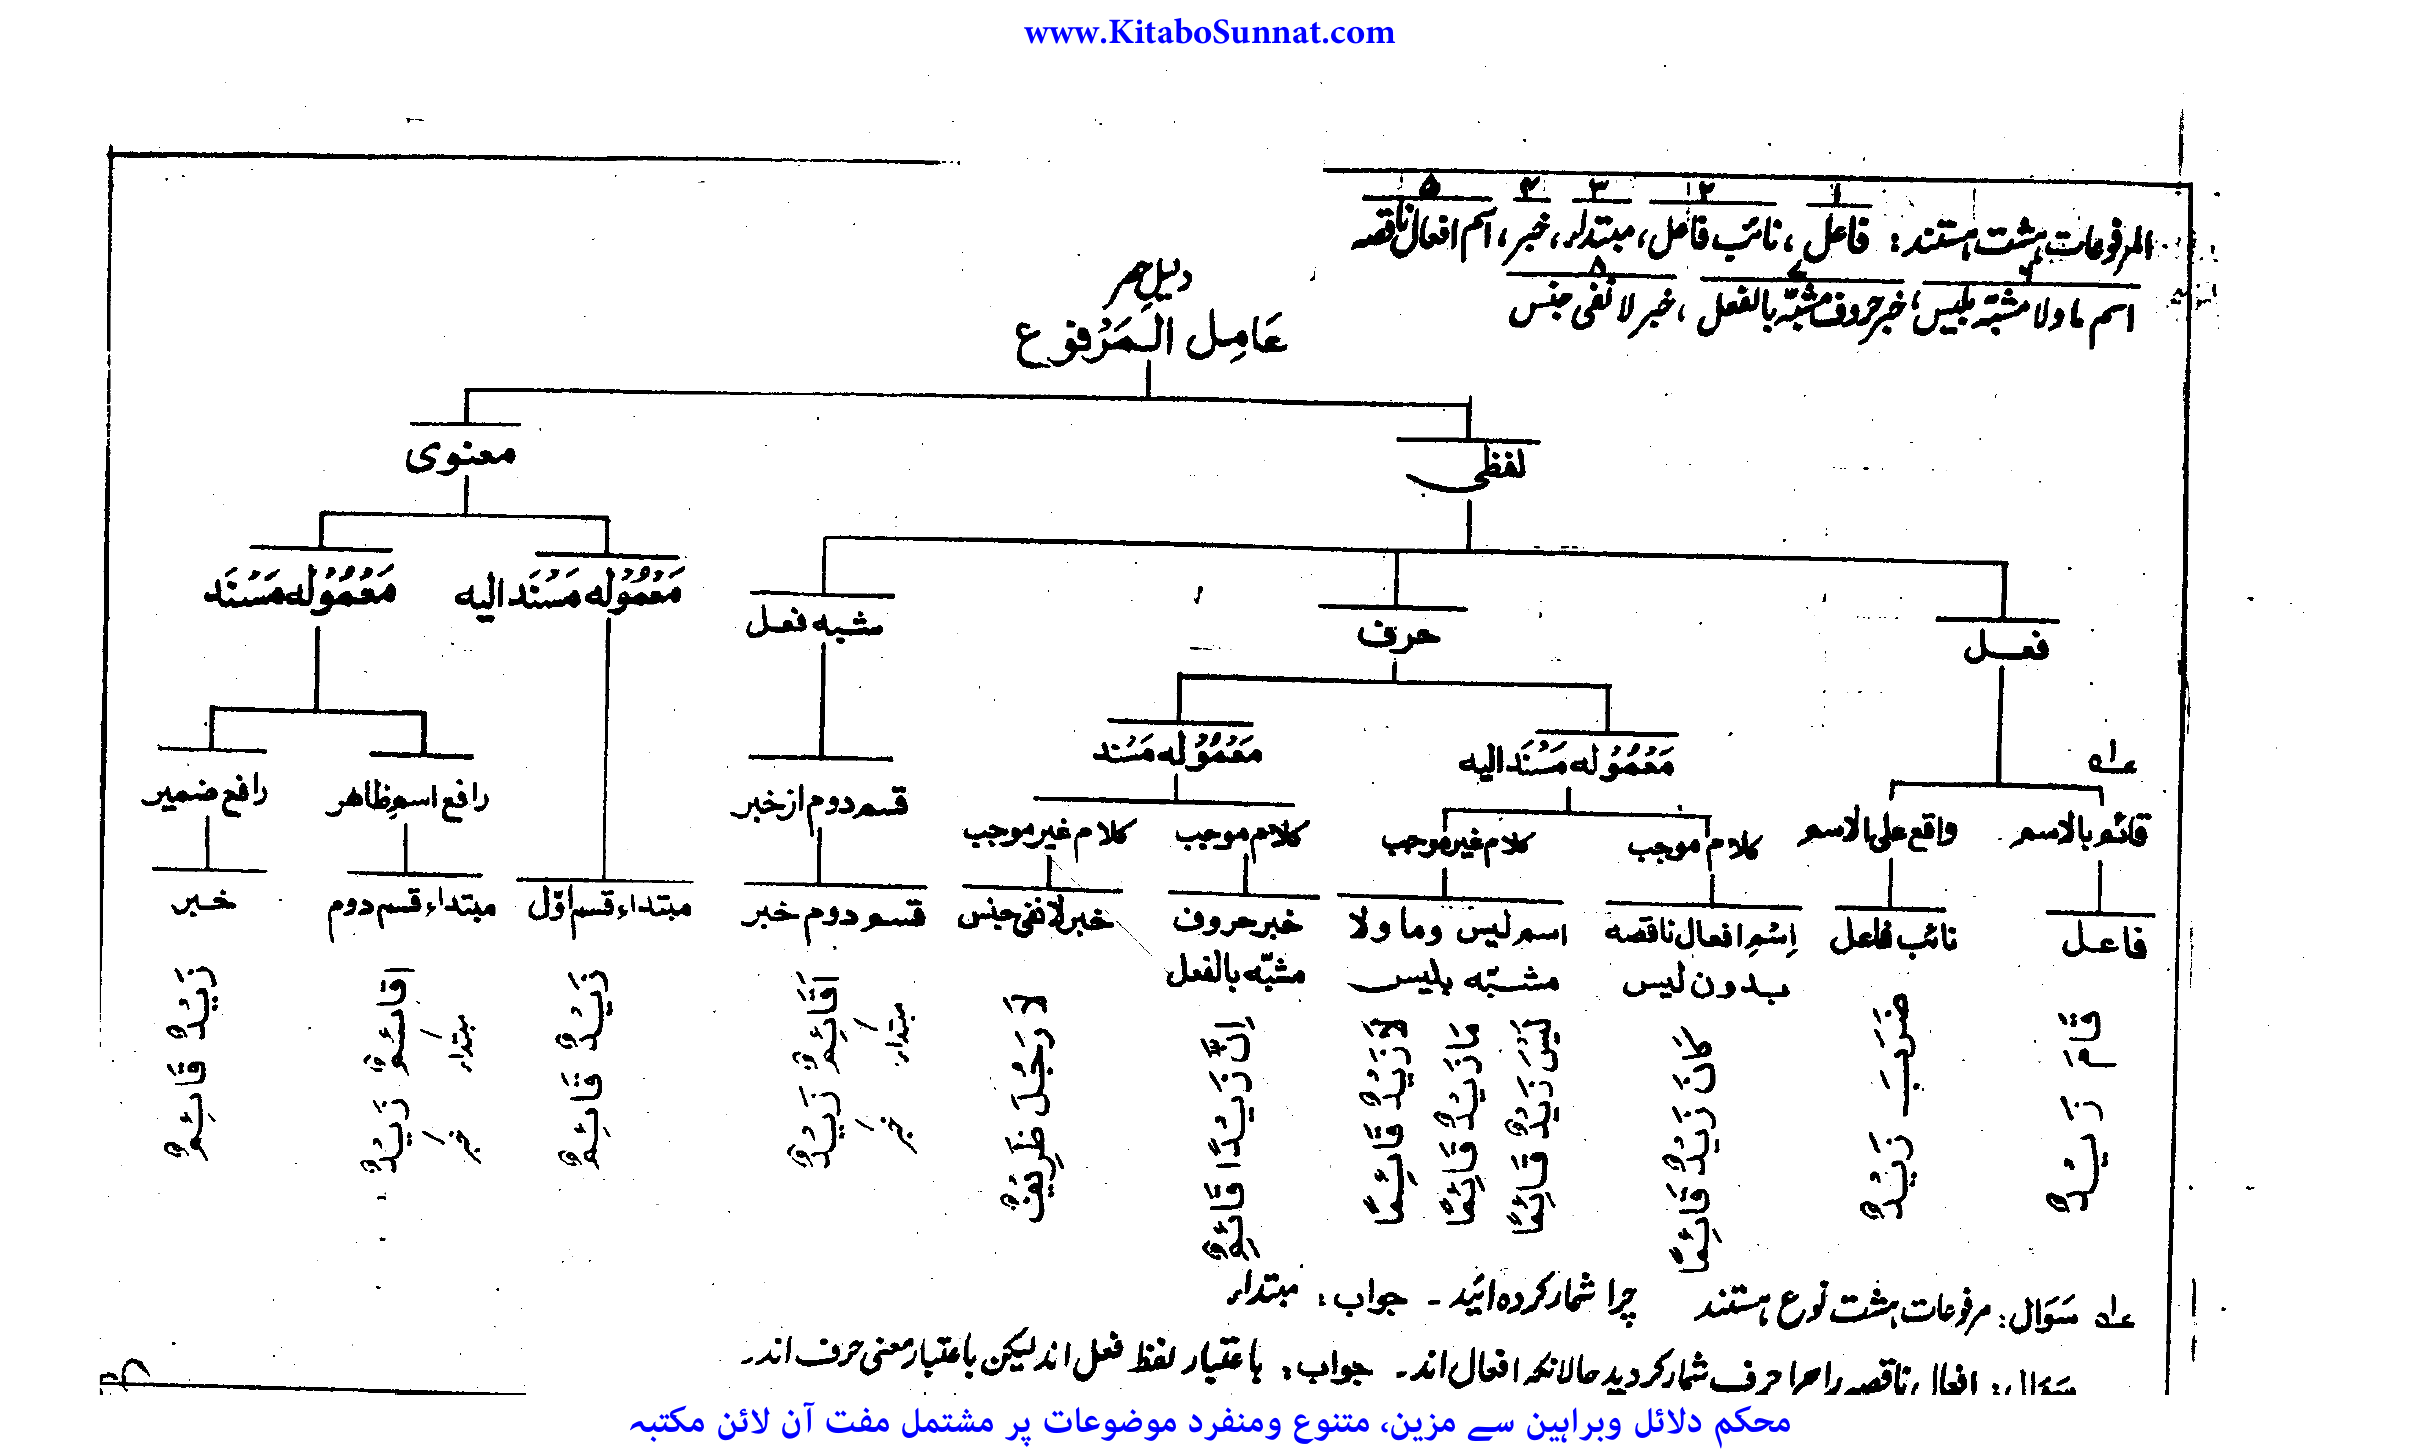 www.KitaboSunnat.com
۱ ۲ ۳ ۴ ۵
المرفوعات ہشت ہستند: فاعل، نائب فاعل، مبتداء، خبر، اسم افعال ناقصہ
۶ ۷ ۸
اسم ما ولا مشبّہ بلیس، خبر حروف مشبّہ بالفعل، خبر لا نفی جنس
دلیل حصر
عَامِل المَرْفوع
لفظی
معنوی
فعل
حرف
شبه فعل
مَعْمُوْلُه مَسْنَد اليه
مَعْمُوْلُه مَسْنَد
مَعْمُوْلُه مَسْنَد اليه
مَعْمُوْلُه مَسْنَد
عہ۱
قائم بالاسم
واقع علی الاسم
کلام موجب
کلام غیر موجب
کلام موجب
کلام غیر موجب
قسم دوم از خبر
رافع اسمِ ظاهر
رافع ضمیر
فاعل
نائب فاعل
اِسْمِ افعال ناقصه
بدون لیس
اسم لیس وما ولا
مشبّه بلیس
خبر حروف
مشبّه بالفعل
خبر لا نفی جنس
قسم دوم خبر
مبتداء قسم اوّل
مبتداء قسم دوم
خبر
قَامَ زَيْدٌ
ضَرَبَ زَيْدٌ
كَانَ زَيْدٌ قَائِمًا
لَيْسَ زَيْدٌ قَائِمًا
مَا زَيْدٌ قَائِمًا
لَا زَيْدٌ قَائِمًا
اِنَّ زَيْدًا قَائِمٌ
لَا رَجُلَ ظَرِيْفٌ
اَقَائِمٌ زَيْدٌ
مبتداء خبر
زَيْدٌ قَائِمٌ
اَقَائِمٌ زَيْدٌ
مبتداء خبر
زَيْدٌ قَائِمٌ
عہ۱ سَوَال: مرفوعات ہشت نوع ہستند چرا شمار کردہ ائید۔ جواب: مبتداء
سَوَال: افعال ناقصہ را چرا حرف شمار کردید حالانکہ افعال اند۔ جواب: باعتبار لفظ فعل اند لیکن باعتبار معنی حرف اند۔
محکم دلائل وبراہین سے مزین، متنوع ومنفرد موضوعات پر مشتمل مفت آن لائن مکتبہ